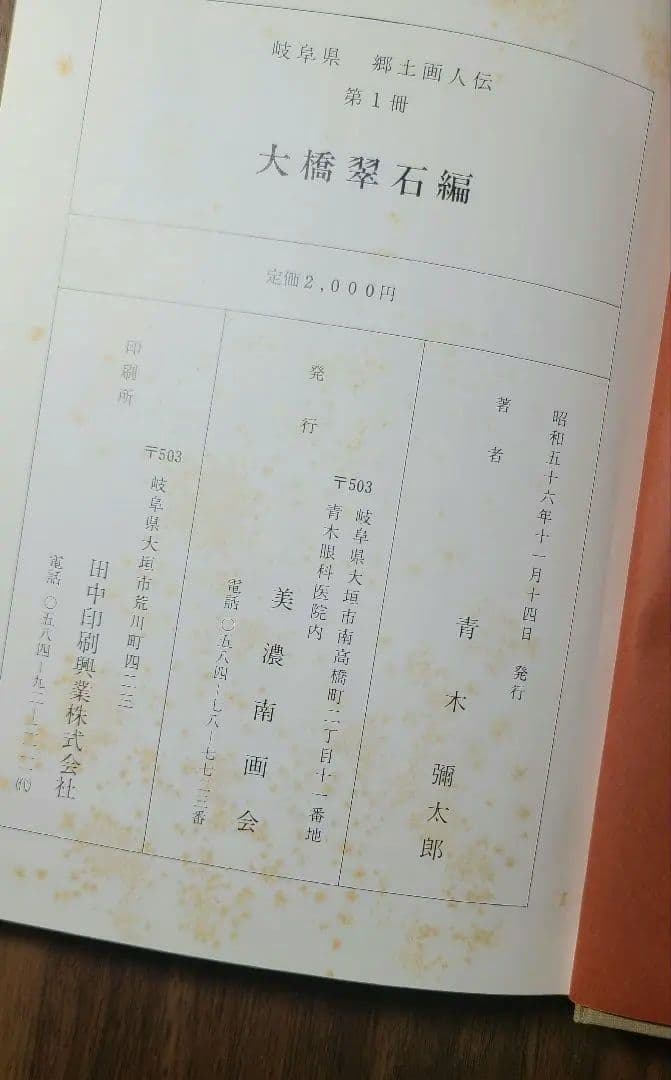 岐阜県 郷土画人伝
第1冊
大橋翠石編
定価2,000円
昭和五十六年十一月十四日 発行
著者
青木彌太郎
発行
〒503
岐阜県大垣市南高橋町二丁目十一番地
青木眼科医院内
美濃南画会
電話 〇五八四-七八-七七二三番
印刷所
〒503
岐阜県大垣市荒川町四二二
田中印刷興業株式会社